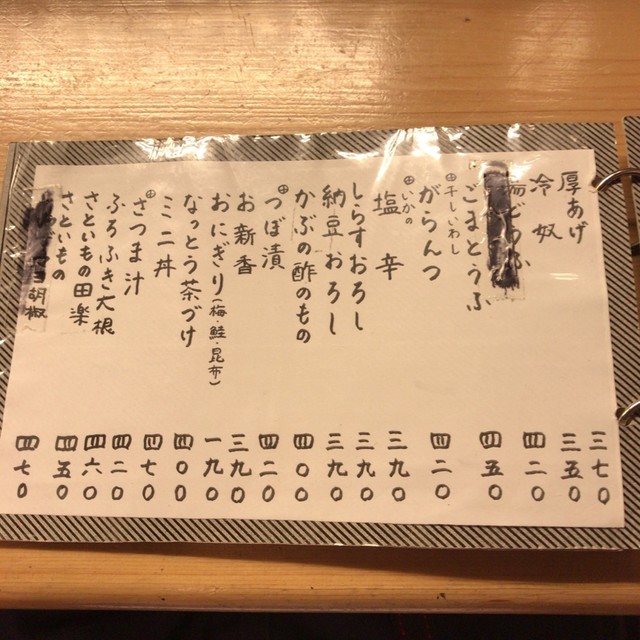 厚あげ 三七〇
冷奴 三五〇
湯どうふ 四二〇
ごまとうふ 四五〇
㊉干しいわし
がらんつ 四二〇
㊉いかの
塩辛 三九〇
しらすおろし 三九〇
納豆おろし 三九〇
かぶの酢のもの 四〇〇
㊉つぼ漬 四二〇
お新香 三九〇
おにぎり(梅・鮭・昆布) 一九〇
なっとう茶づけ 四〇〇
ミニ丼 四七〇
㊉さつま汁 四二〇
ふろふき大根 四六〇
さといもの田楽 四五〇
さといもの
胡椒 四七〇